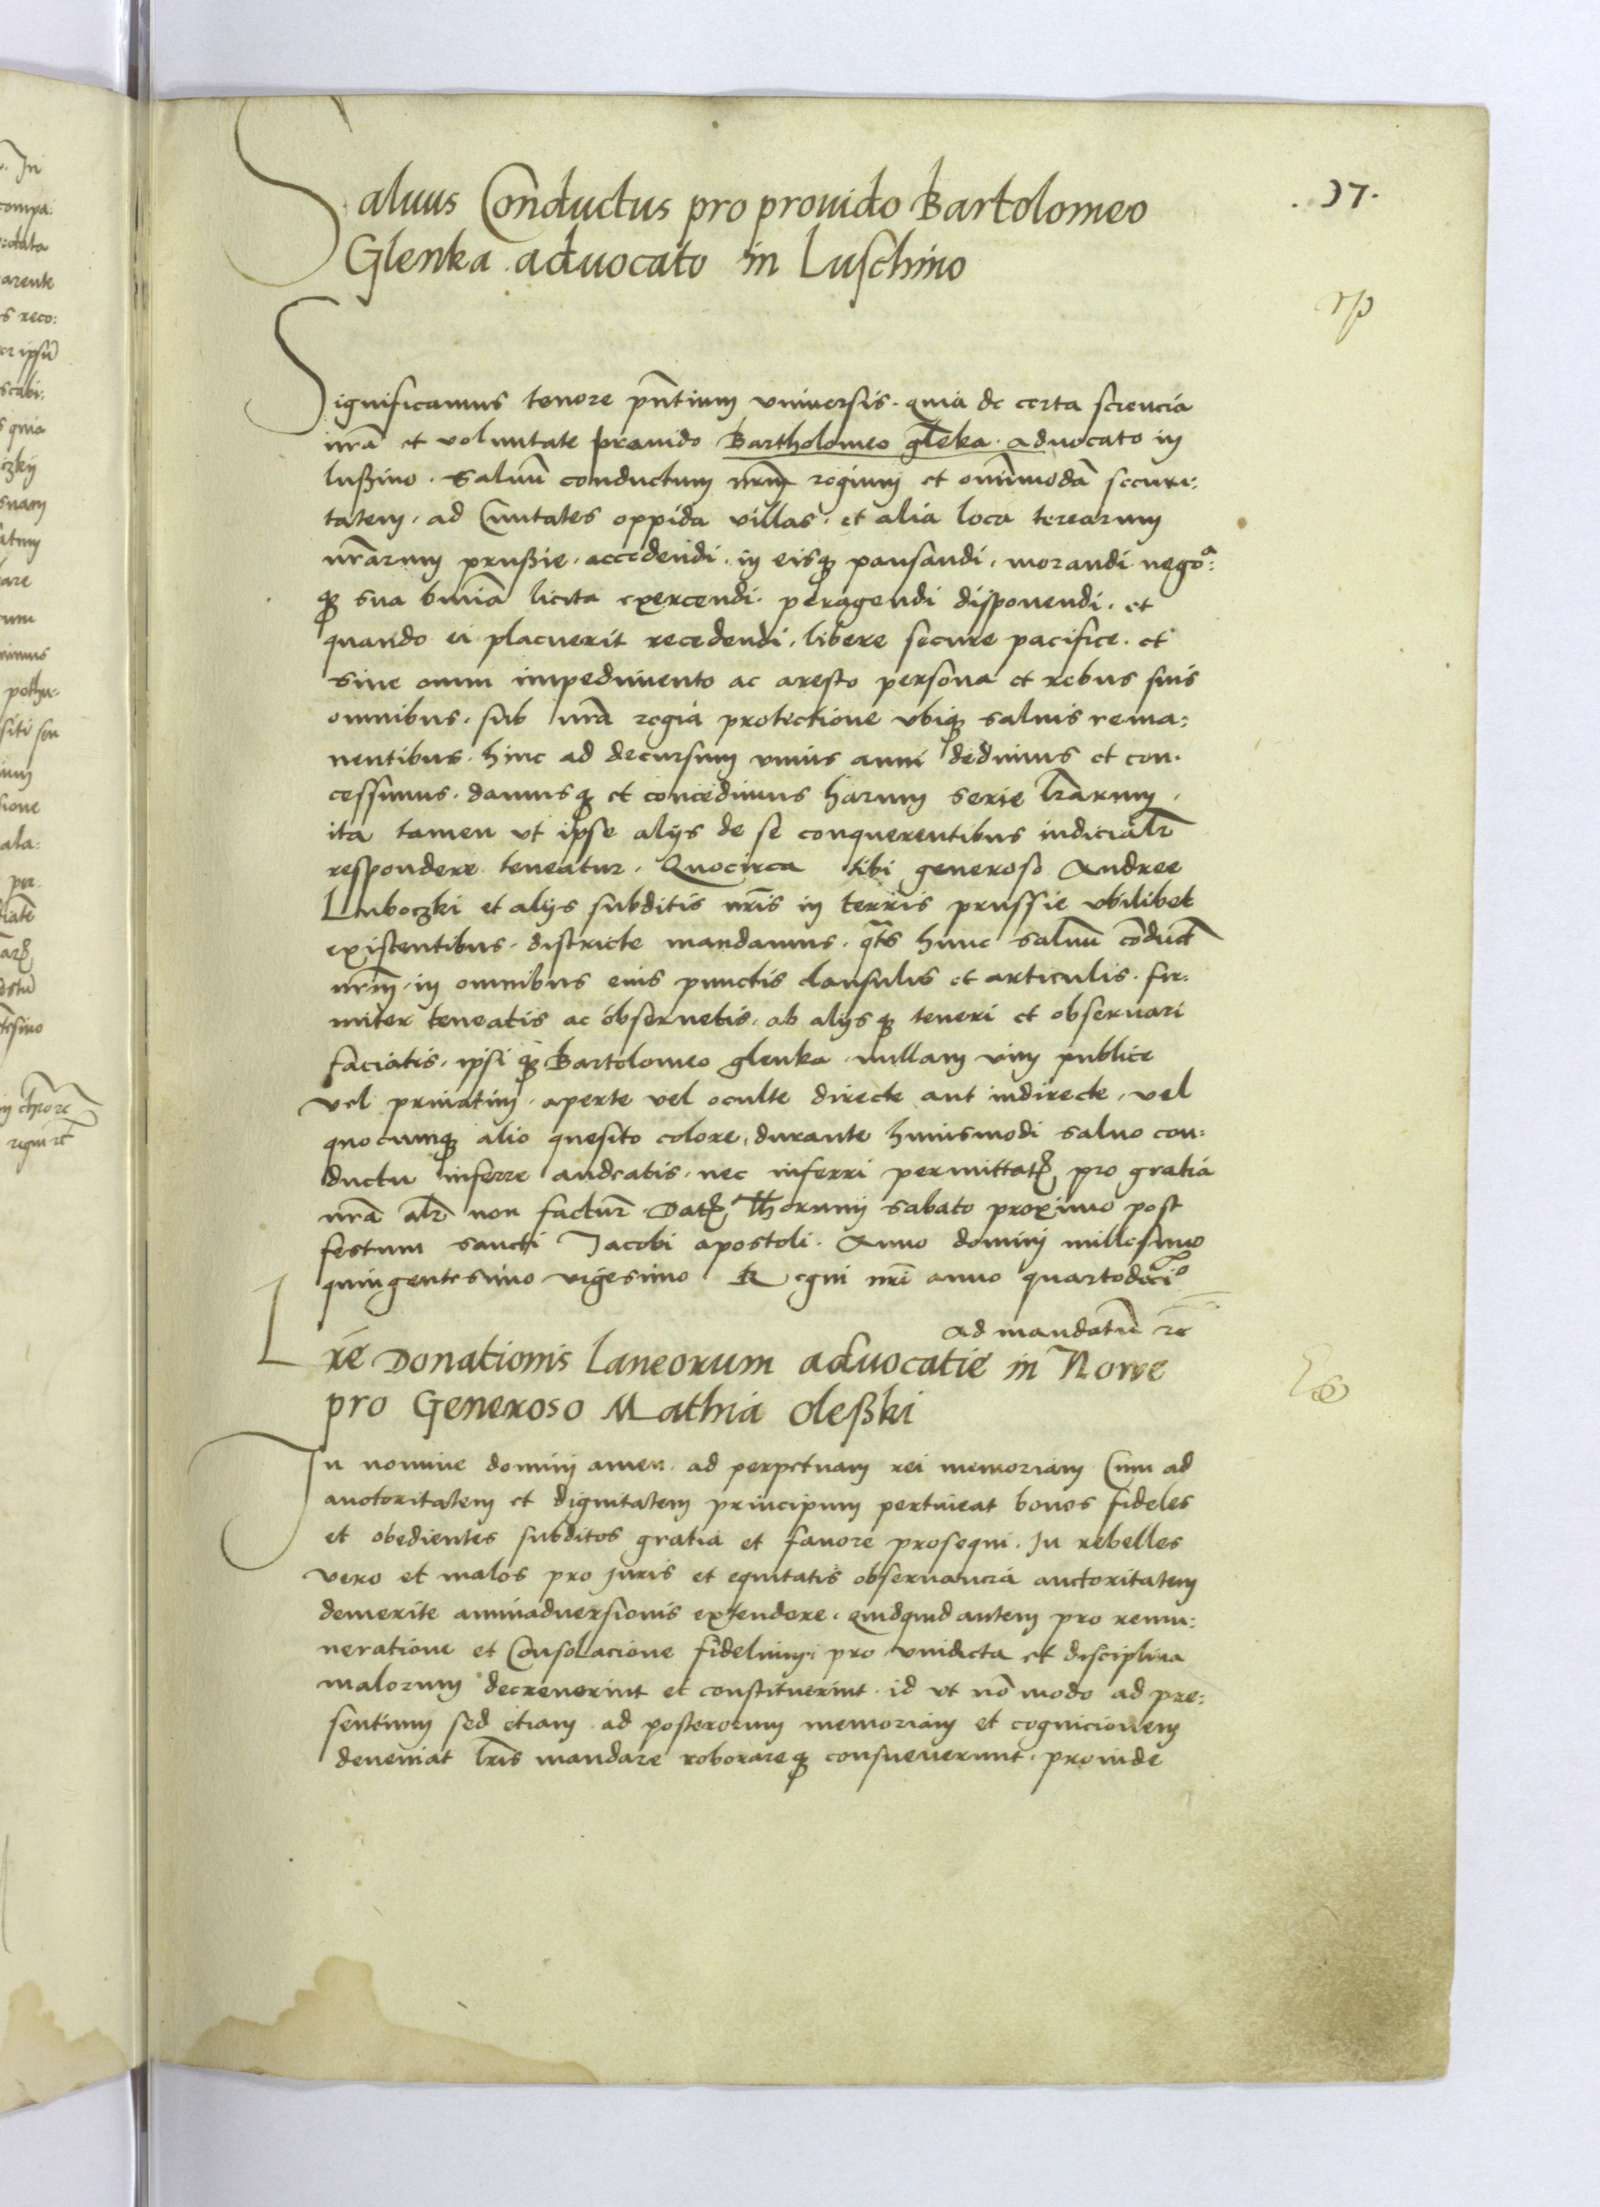 Saluus Conductus pro prouido Bartolomeo
Glenka aduocato in Luschino
.37.
Significamus tenore pñtium vniuersis. quia de certa sciencia
nrã et voluntate prouido Bartholomeo gleka. aduocato in
lußino. saluũ conductum nrm̃ regium et omĩmodã securi:
tatem. ad Ciuitates oppida villas. et alia loca terrarum
nrãrum prußie. accedendi. in eisq pausandi. morandi nego:ᵃ
q sua omĩa licita exercendi. peragendi disponendi. et
quando ei placuerit recedendi. libere secure pacifice. et
sine omni impedimento ac aresto persona et rebus suis
omnibus. sub nrã regia protectione vbiq saluis rema:
nentibus. hinc ad decursum vnius anni dedimus et con.
cessimus. damusq et concedimus harum serie lrãrum.
ita tamen vt ipse alijs de se conquerentibus iudicialr̃
respondere teneatur. Quocirca tibi generoso Andree
Luboczki et alijs subditis nrĩs in terris prussie vbilibet
existentibus. districte mandamus. qt̃s hunc saluũ cõduct̃
nrm̃. in omnibus eius punctis clausulis et articulis. fir:
miter teneatis ac obseruetis. ab alijsq teneri et obseruari
faciatis. ipsi q Bartolomeo glenka. nullam vim publice
vel priuatim. aperte vel oculte directe aut indirecte, vel
quocumq alio quesito colore, durante huiusmodi saluo con:
ductu inferre audeatis. nec inferri permittatꝭ pro gratia
nrã alr̃ non facturꝭ. Datꝭ Thorunij sabato proximo post
festum sancti Jacobi apostoli. Anno domini millesimo
quingentesimo vigesimo Regni nrĩ anno quartodeciº
ad mandatũ rc̃
Lre Donationis laneorum aduocatie in Nowe
pro Generoso Mathia oleßki
In nomine domini amen. ad perpetuam rei memoriam Cum ad
auctoritatem et dignitatem principum pertineat bonos fideles
et obedientes subditos gratia et fauore prosequi. In rebelles
vero et malos pro juris et equitatis obseruancia auctoritatem
demerite animaduersionis extendere. quidquid autem pro remu:
neratione et Consolacione fidelium. pro vindicta et disciplina
malorum decreuerint et constituerint. id vt nõ modo ad pre:
sentium sed etiam ad posterorum memoriam et cognicionem
deueniat lrĩs mandare roborareq consueuerunt. proinde